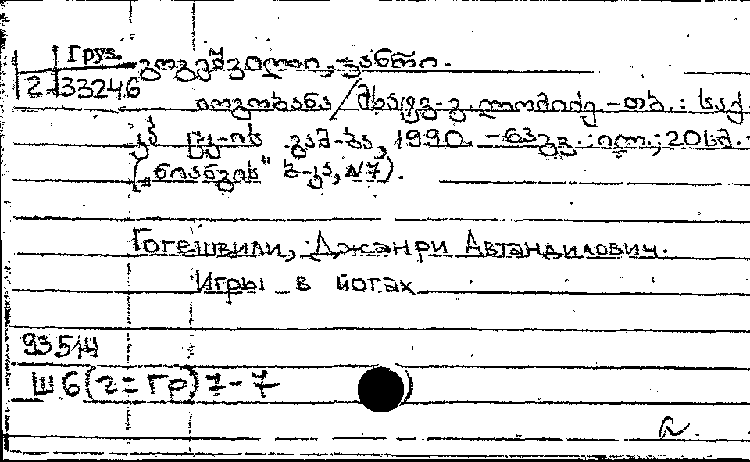 Груз.
2-33246
გოგეშვილი, ჯანრი.
იოგობანა / მხატვ. გ. ლომიძე - თბ. : საქ
კპ ცკ-ის გამ-ბა, 1990. - 63გვ. : ილ.; 20სმ. -
(„ნიანგის" ბ-კა, N7).
Гогешвили, Джанри Автандилович.
Игры в йогах
93514
Ш6(2=Гр)7-7